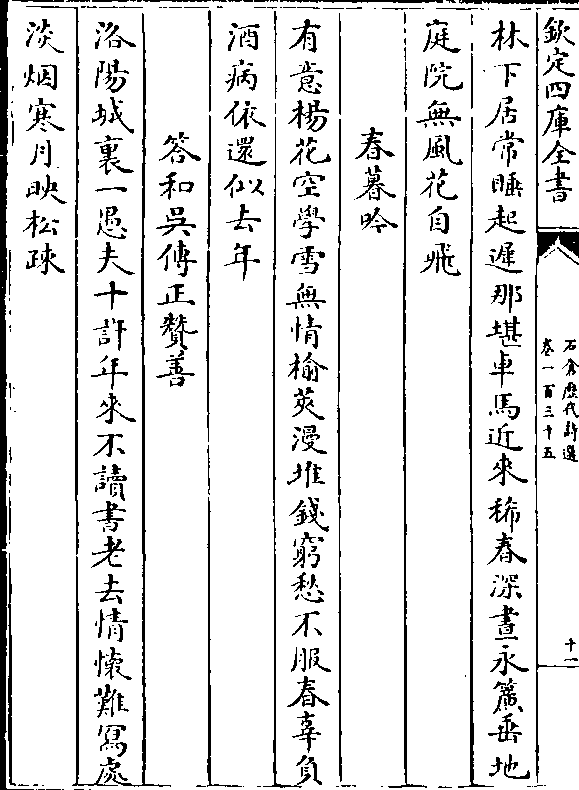 欽定四庫全書
石倉歴代詩選
卷一百三十五
十一
林下居常睡起遲那堪車馬近來稀春深晝永簾垂地
庭院無風花自飛
春暮吟
有意楊花空學雪無情榆莢漫堆錢窮愁不服春辜負
酒病依還似去年
答和吳傅正贊善
洛陽城裏一愚夫十許年來不讀書老去情懷難寫處
淡烟寒月映松疎